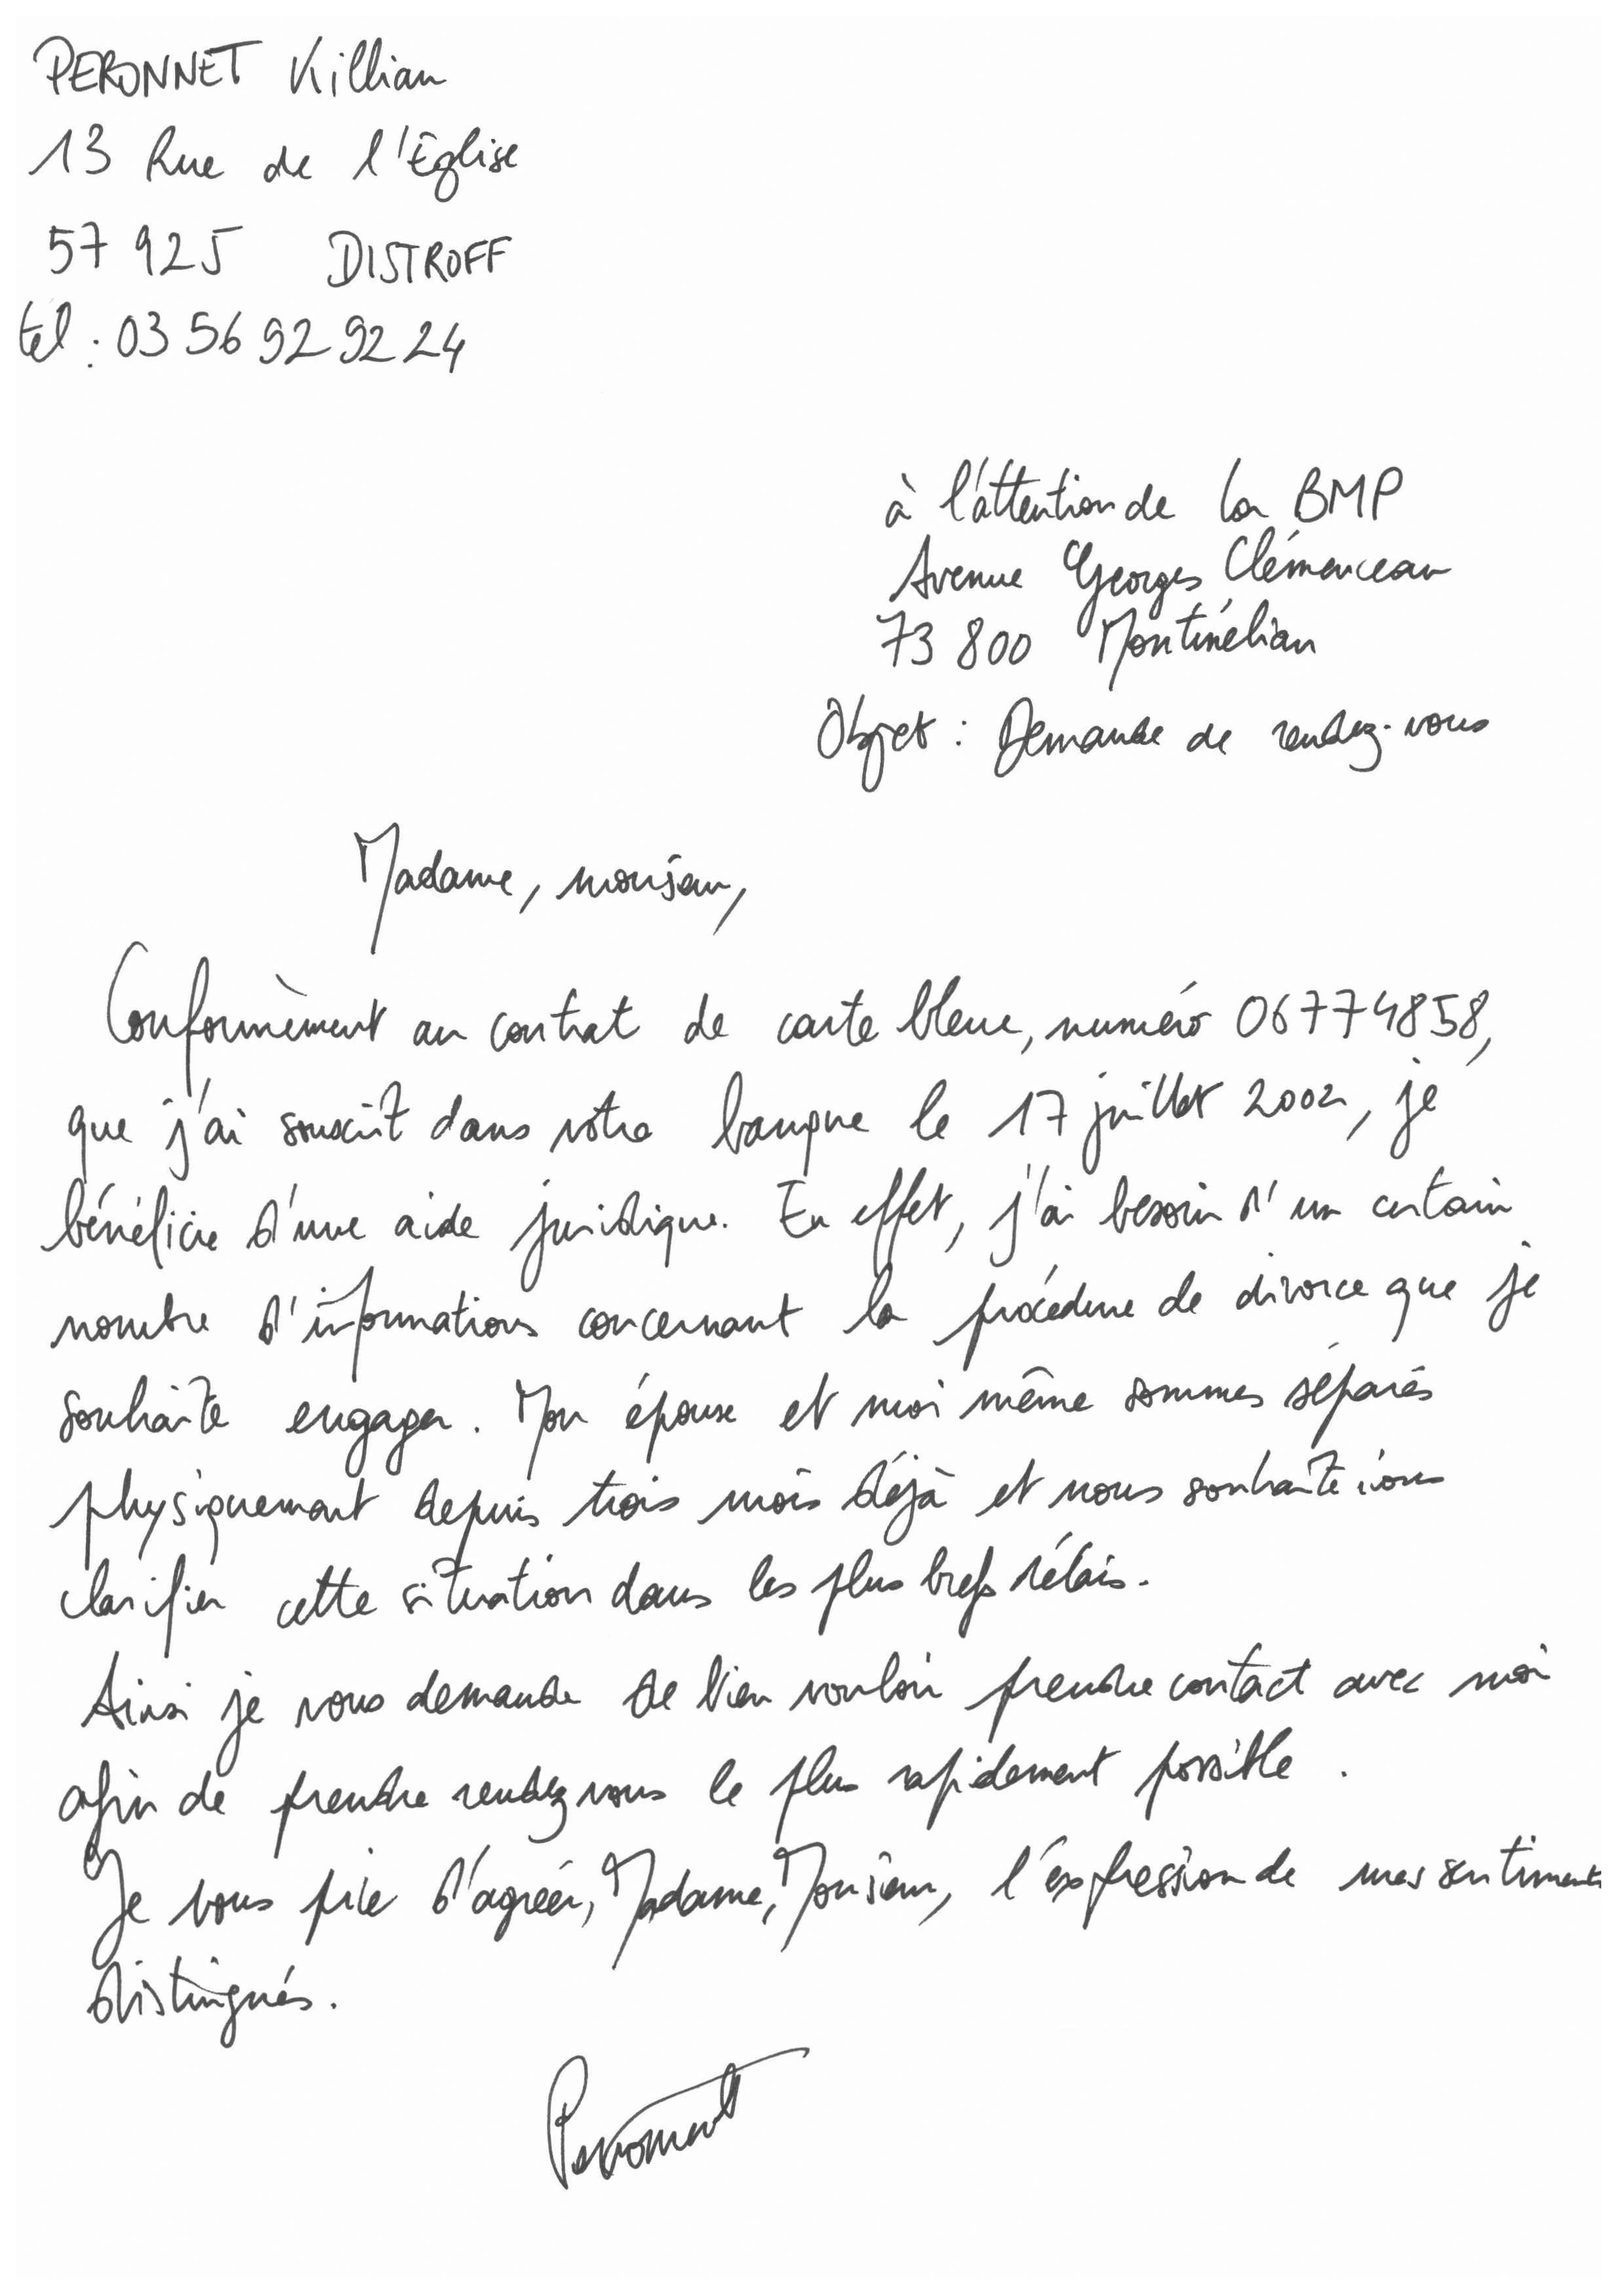 PERONNET Killian
13 Rue de l'Eglise
57 925 DISTROFF
tel : 03 56 92 92 24
à l'attention de la BMP
Avenue Georges Clémenceau
73 800 Montmélian
Objet : Demande de rendez-vous
Madame, monsieur,
Conformèment au contrat de carte bleue, numéro 06774858,
que j'ai souscrit dans votre banque le 17 juillet 2002, je
bénéficie d'une aide juridique. En effet, j'ai besoin d'un certain
nombre d'informations concernant la procédure de divorce que je
souhaite engager. Mon épouse et moi même sommes séparés
physiquement depuis trois mois déjà et nous souhaiterions
clarifier cette situation dans les plus brefs délais.
Ainsi je vous demande de bien vouloir prendre contact avec moi
afin de prendre rendez vous le plus rapidement possible .
Je vous prie d'agréér, Madame, Monsieur, l'expression de mes sentiments
distingués.
Peronnet